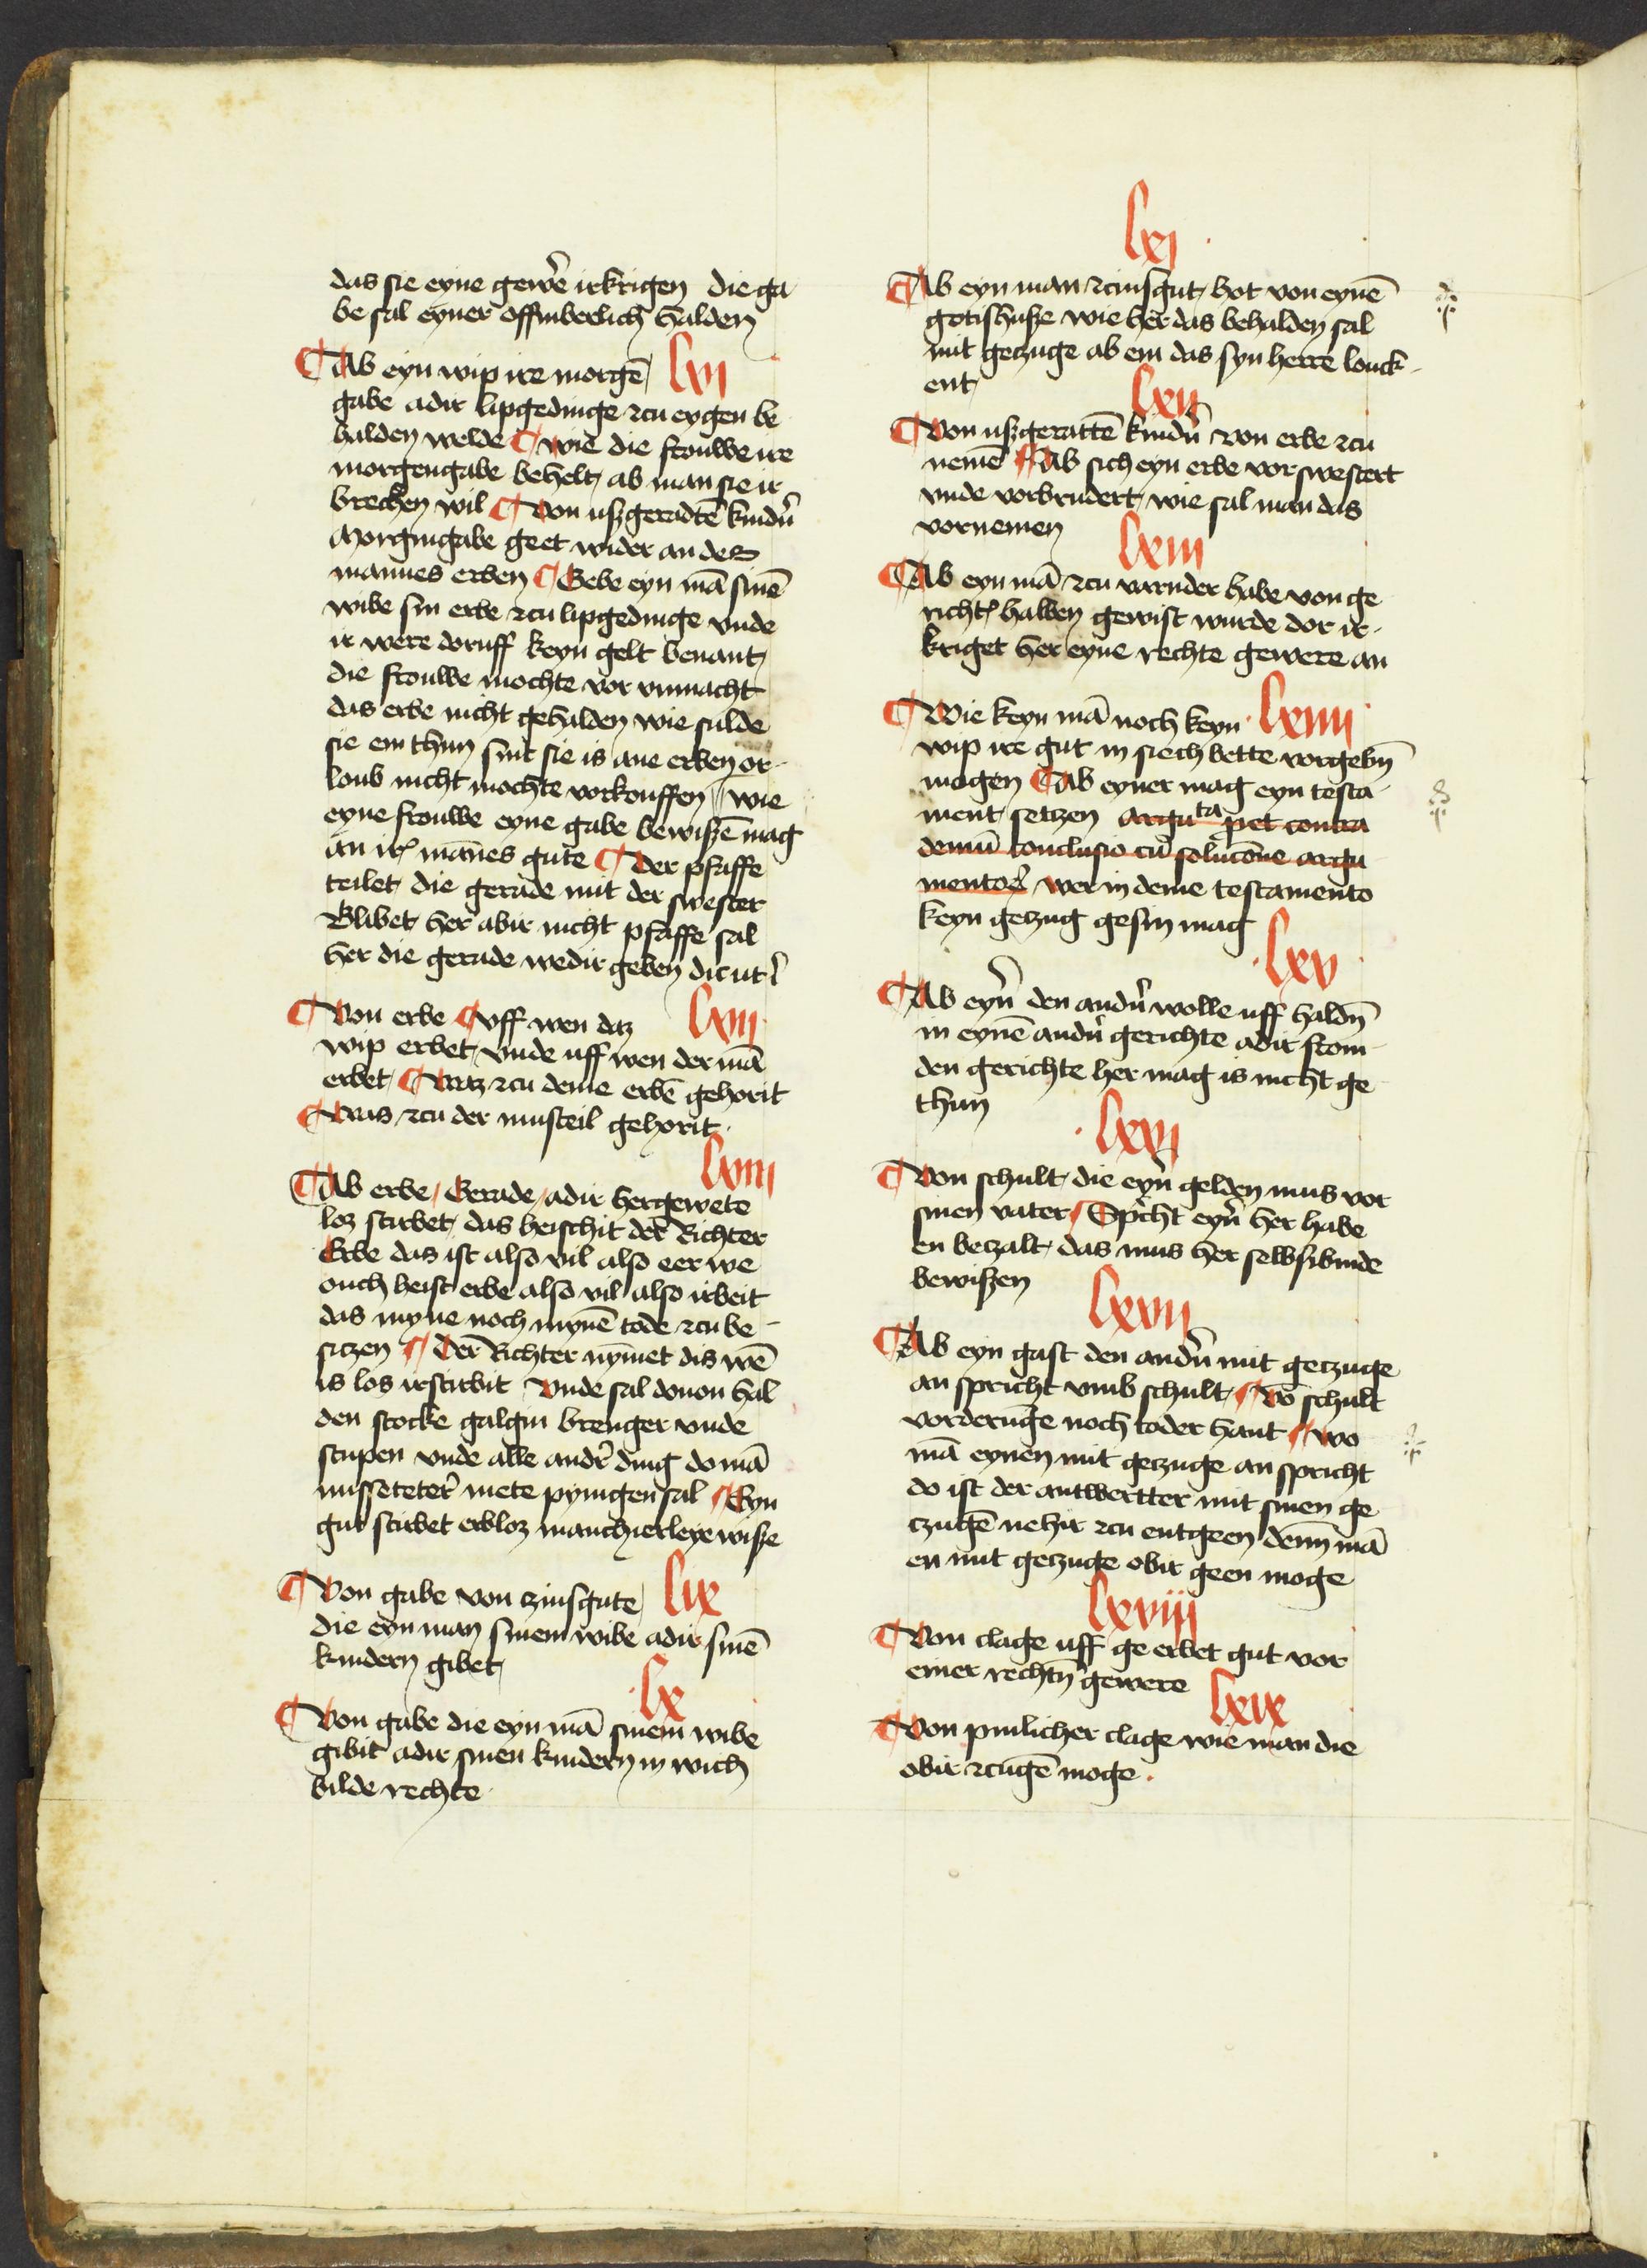 das sie eyne gewẻe irkrigen die ga
be sal eyner offinberlich halden
¶ Ab eyn wip ire morgē lvi
gabe adir lipgedinge zcu eygen be
halden welde ¶ wie die frouwe ire
morgengabe behelt, ab man sie ir
brechen wil ¶ Von uszgeradtē kindn̄
Morgingabe geet wider an des
mannes erben ¶ Gebe eyn mā sinē
wibe sin erbe zcu lipgedinge vnde
ir were doruff keyn gelt benant,
die frouwe mochte vor vnmacht
das erbe nicht gehalden wie sulde
sie em thun sint sie is ane erben or-
loub nicht mochte vorkouffen wie
eyne frouwe eyne gabe bewiszē mag
an irꝭ mānes gute ¶ Der pfaffe
teilet die gerade mit der swester
Blibet her abir nicht pfaffe sal
her die gerade wedir geben
¶ Von erbe ¶ Vff wen daz lvii
wip erbet, vnde uff wen der mā
erbet, ¶ Waz zcu deme erbē gehorit
¶ Was zcu der musteil gehorit.
lviii
¶ Ab erbe, Gerade, adir hergewete
loz stirbet, das heischit der Richter
Erbe das ist also vil also eer we
ouch heist erbe also vil also irbeit
das myne noch mynē tode zcu be-
sitzen ¶ Der Richter nȳmet dis wē
is los irstirbit Vnde sal douon hal
den stocke galgin brenger vnde
stupen vnde alle andr̄ ding do mā
misseteter̄ mete pynigen sal ¶ Eyn
gut stirbet erbloz manchirleye wisze
¶ Von gabe von czinsgute lix
die eyn man sinem wibe adir sinē
kindern gibet,
lx
¶ Von gabe die eyn mā sinem wibe
gibit adir sinen kindern in wich
bilde rechte
lxi
¶ Ab eyn man zcinsgut, hot von eynē
gotishusze wie her das behalden sal
mit geczuge ab em das syn herre louck-
ent,
lxii
¶ Von uszgerattē kindn̄ von erbe zcu
nemē ¶ Ab sich eyn erbe vorswestert
vnde vorbrudert, wie sal man das
vornemen
lxiii
¶ Ab eyn mā zcu varnder habe von ge
richtꝭ halben gewist wurde dor ir-
kriget her eyne rechte gewere an
¶ Wie keyn mā noch keyn lxiiii
wip ire gut in siech bette vorgebn̄
mogen ¶ Ab eyner mag eyn testa-
ment setzen arguta pͥet contra
demū conclusio cū soluc̄one argu
mentoꝝ wer in deme testamento
keyn geczug gesin mag
lxv
¶ Ab eyn̄ den andn̄ wolle uff haldn̄
in eynē andn̄ gerichte adir from-
den gerichte her mag is nicht ge
thun
lxvi
¶ Von schult, die eyn̄ gelden mus vor
sinen vater ¶ Spͥcht eyn̄ her habe
en beczalt, das mus her selbsibinde
bewiszen
lxvii
¶ Ab eyn gast den andn̄ mit geczuge
an spricht vmb schult, ¶ Vō schult
vorderunge noch toder hant ¶ wo
mā eynen mit geczuge an spricht
do ist der antwertter mit sinen ge
czugē nehir zcu entgeen denn mā
en mit geczuge obir geen moge
lxviij
¶ Von clage uff ge erbet gut vor
einer rechtn̄ gewere lxix
¶ Von pinlicher clage wie man die
obir zcugē moge.